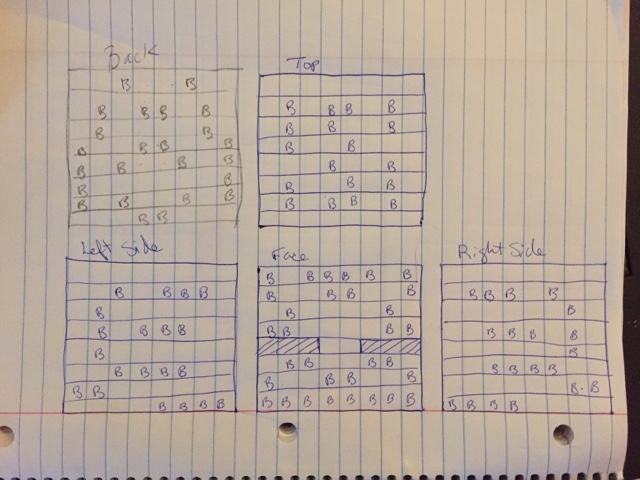 Back
B B
B B B B
B B
B B B B
B B B B
B B
B B B B
B B
Top
B B B B
B B B
B B
B B
B B B
B B B B
Left Side
B B B B
B
B B B B
B
B B B B
B B
B B B B
Face
B B B B B B
B B B B
B B
B B B B
B B B B
B B B B
B B B B B B B B B
Right Side
B B B B
B
B B B B
B
B B B B
B B
B B B B